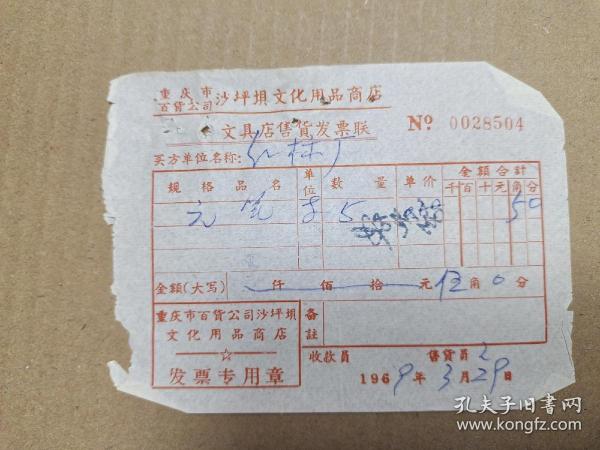 重庆市百货公司 沙坪坝文化用品商店
文具店售货发票联 № 0028504
买方单位名称:
规格品名 单位 数量 单价 金额合計
千百十元角分
元 5 50
金额(大写) 仟 佰 拾 元 伍角 0分
重庆市百货公司沙坪坝
文化用品商店
☆
发票专用章
备註
收款員 售貨員
1969年3月29日
孔夫子旧书网
www.kongfz.com